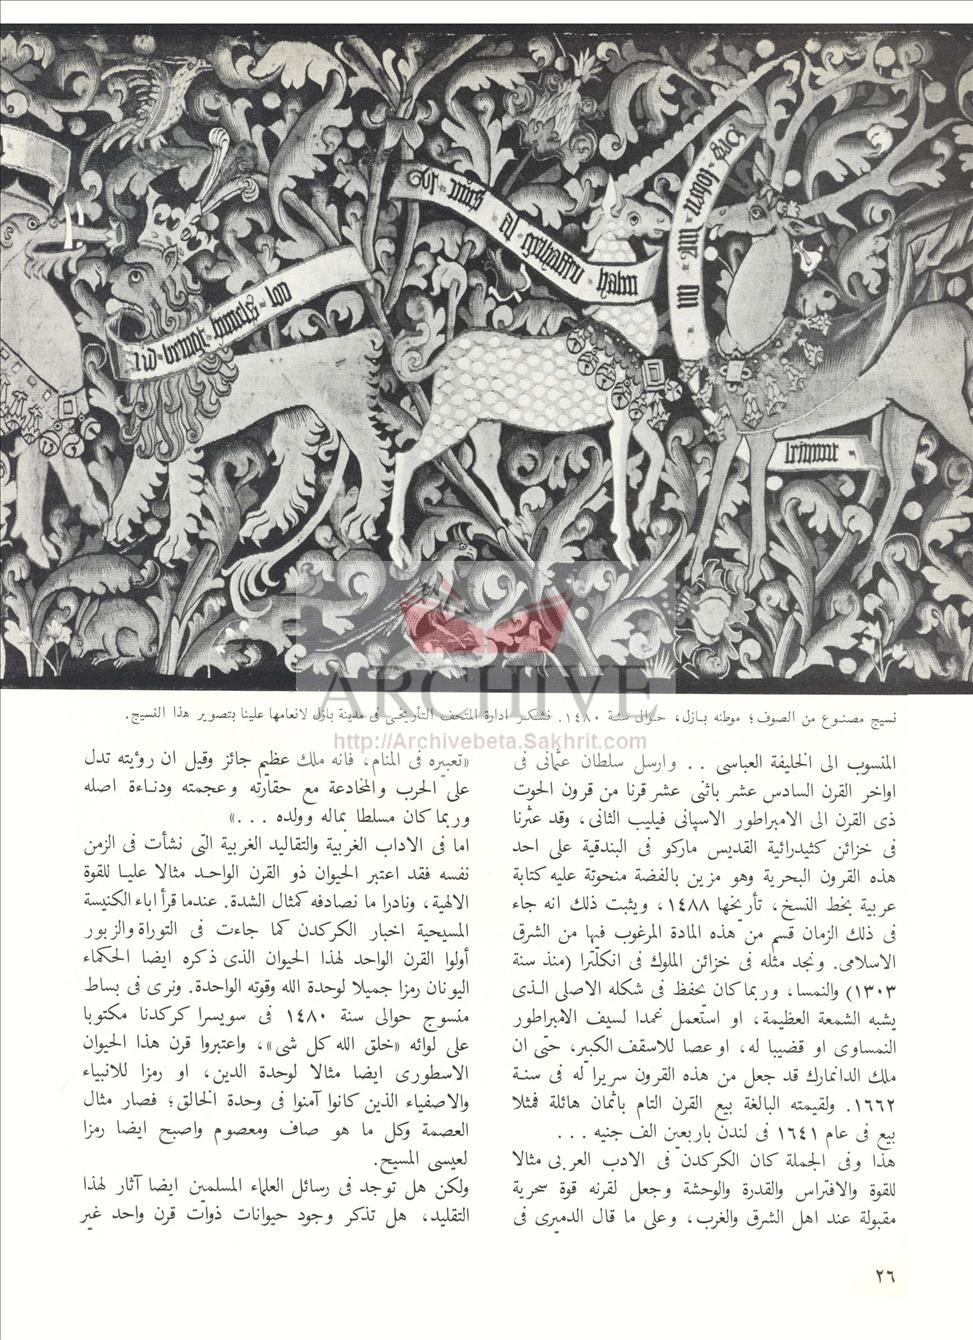 نسيج مصنوع من الصوف؛ موطنه بازل، حوالى سنة ١٤٨٠. نشكر ادارة المتحف التأريخى فى مدينة بازل لانعامها علينا بتصوير هذا النسيج.
ARCHIVE
http://Archivebeta.Sakhrit.com
المنسوب الى الخليفة العباسى .. وارسل سلطان عثمانى فى
اواخر القرن السادس عشر باثنى عشر قرنا من قرون الحوت
ذى القرن الى الامبراطور الاسپانى فيليب الثانى، وقد عثرنا
فى خزائن كثيدرائية القديس ماركو فى البندقية على احد
هذه القرون البحرية وهو مزين بالفضة منحوتة عليه كتابة
عربية بخط النسخ، تأريخها ١٤٨٨، ويثبت ذلك انه جاء
فى ذلك الزمان قسم من هذه المادة المرغوب فيها من الشرق
الاسلامى. ونجد مثله فى خزائن الملوك فى انكلترا (منذ سنة
١٣٠٣) والنمسا، وربما كان يحفظ فى شكله الاصلى الذى
يشبه الشمعة العظيمة، او استعمل غمدا لسيف الامبراطور
النمساوى او قضيبا له، او عصا للاسقف الكبير، حتى ان
ملك الدانمارك قد جعل من هذه القرون سريرا له فى سنة
١٦٦٢. ولقيمته البالغة بيع القرن التام باثمان هائلة فمثلا
بيع فى عام ١٦٤١ فى لندن باربعين الف جنيه ...
هذا وفى الجملة كان الكركدن فى الادب العربى مثالا
للقوة والافتراس والقدرة والوحشة وجعل لقرنه قوة سحرية
مقبولة عند اهل الشرق والغرب، وعلى ما قال الدميرى فى
«تعبيره فى المنام، فانه ملك عظيم جائز وقيل ان رؤيته تدل
على الحرب والمخادعة مع حقارته وعجمته ودناءة اصله
وربما كان مسلطا بماله وولده ...»
اما فى الاداب الغربية والتقاليد الغربية التى نشأت فى الزمن
نفسه فقد اعتبر الحيوان ذو القرن الواحد مثالا عليا للقوة
الالهية، ونادرا ما نصادفه كمثال الشدة. عندما قرأ اباء الكنيسة
المسيحية اخبار الكركدن كما جاءت فى التوراة والزبور
أولوا القرن الواحد لهذا الحيوان الذى ذكره ايضا الحكماء
اليونان رمزا جميلا لوحدة الله وقوته الواحدة. ونرى فى بساط
منسوج حوالى سنة ١٤٨٠ فى سويسرا كركدنا مكتوبا
على لوائه «خلق الله كل شى»، واعتبروا قرن هذا الحيوان
الاسطورى ايضا مثالا لوحدة الدين، او رمزا للانبياء
والاصفياء الذين كانوا آمنوا فى وحدة الخالق؛ فصار مثال
العصمة وكل ما هو صاف ومعصوم واصبح ايضا رمزا
لعيسى المسيح.
ولكن هل توجد فى رسائل العلماء المسلمين ايضا آثار لهذا
التقليد، هل تذكر وجود حيوانات ذوات قرن واحد غير
٢٦